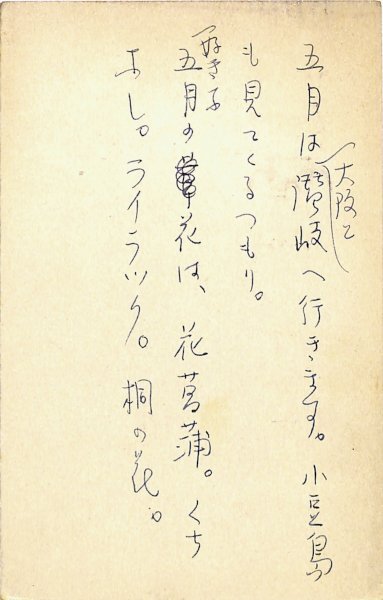 大阪と
五月は讃岐へ行きます。小豆島
も見てくるつもり。
好きな
五月の花は、花菖蒲。くち
なし。ライラック。桐の花。